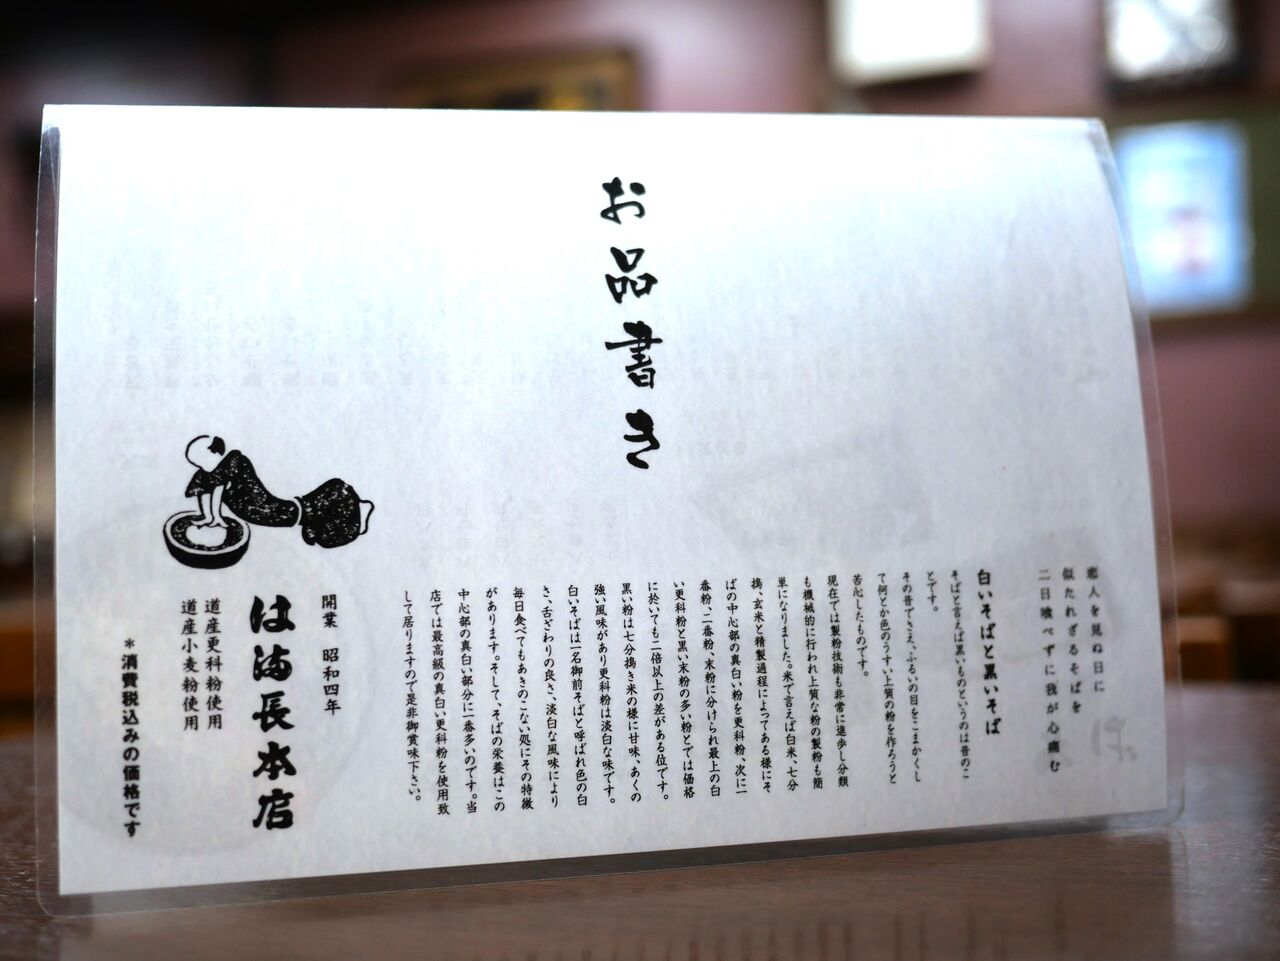 お品書き
恋人を見ぬ日に
似たれざるそばを
二日喰べずに我が心痛む
白いそばと黒いそば
そばと言えば黒いものというのは昔のこ
とです。
その昔でさえ、ふるいの目をこまかくし
て何とか色のうすい上質の粉を作ろうと
苦心したものです。
現在では製粉技術も非常に進歩し分類
も機械的に行われ上質な粉の製粉も簡
単になりました。米で言えば白米、七分
搗、玄米と精製過程によってある様にそ
ばの中心部の真白い粉を更科粉、次に一
番粉、二番粉、末粉に分けられ最上の白
い更科粉と黒い末粉の多い粉とでは価格
に於いても二倍以上の差がある位です。
黒い粉は七分搗き米の様に甘味、あくの
強い風味があり更科粉は淡白な味です。
白いそばは一名御前そばと呼ばれ色の白
さ、舌ざわりの良さ、淡白な風味により
毎日食べてもあきのこない処にその特徴
があります。そして、そばの栄養はこの
中心部の真白い部分に一番多いのです。当
店では最高級の真白い更科粉を使用致
して居りますので是非御賞味下さい。
開業 昭和四年
はま長本店
道産更科粉使用
道産小麦粉使用
＊消費税込みの価格です